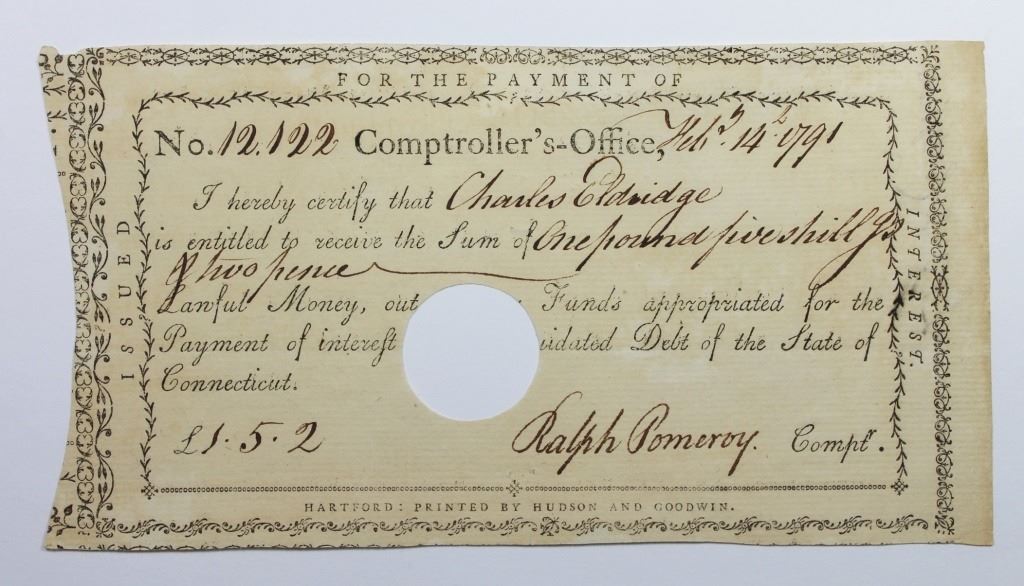 FOR THE PAYMENT OF
ISSUED
INTEREST.
No. 12.122 Comptroller's-Office, Feb.y 14th 1791
I hereby certify that Charles Eldridge
is entitled to receive the Sum of One pound five shillgs
& two pence
Lawful Money, out Funds appropriated for the
Payment of interest uidated Debt of the State of
Connecticut.
£1.5.2 Ralph Pomeroy. Comptr.
HARTFORD: PRINTED BY HUDSON AND GOODWIN.